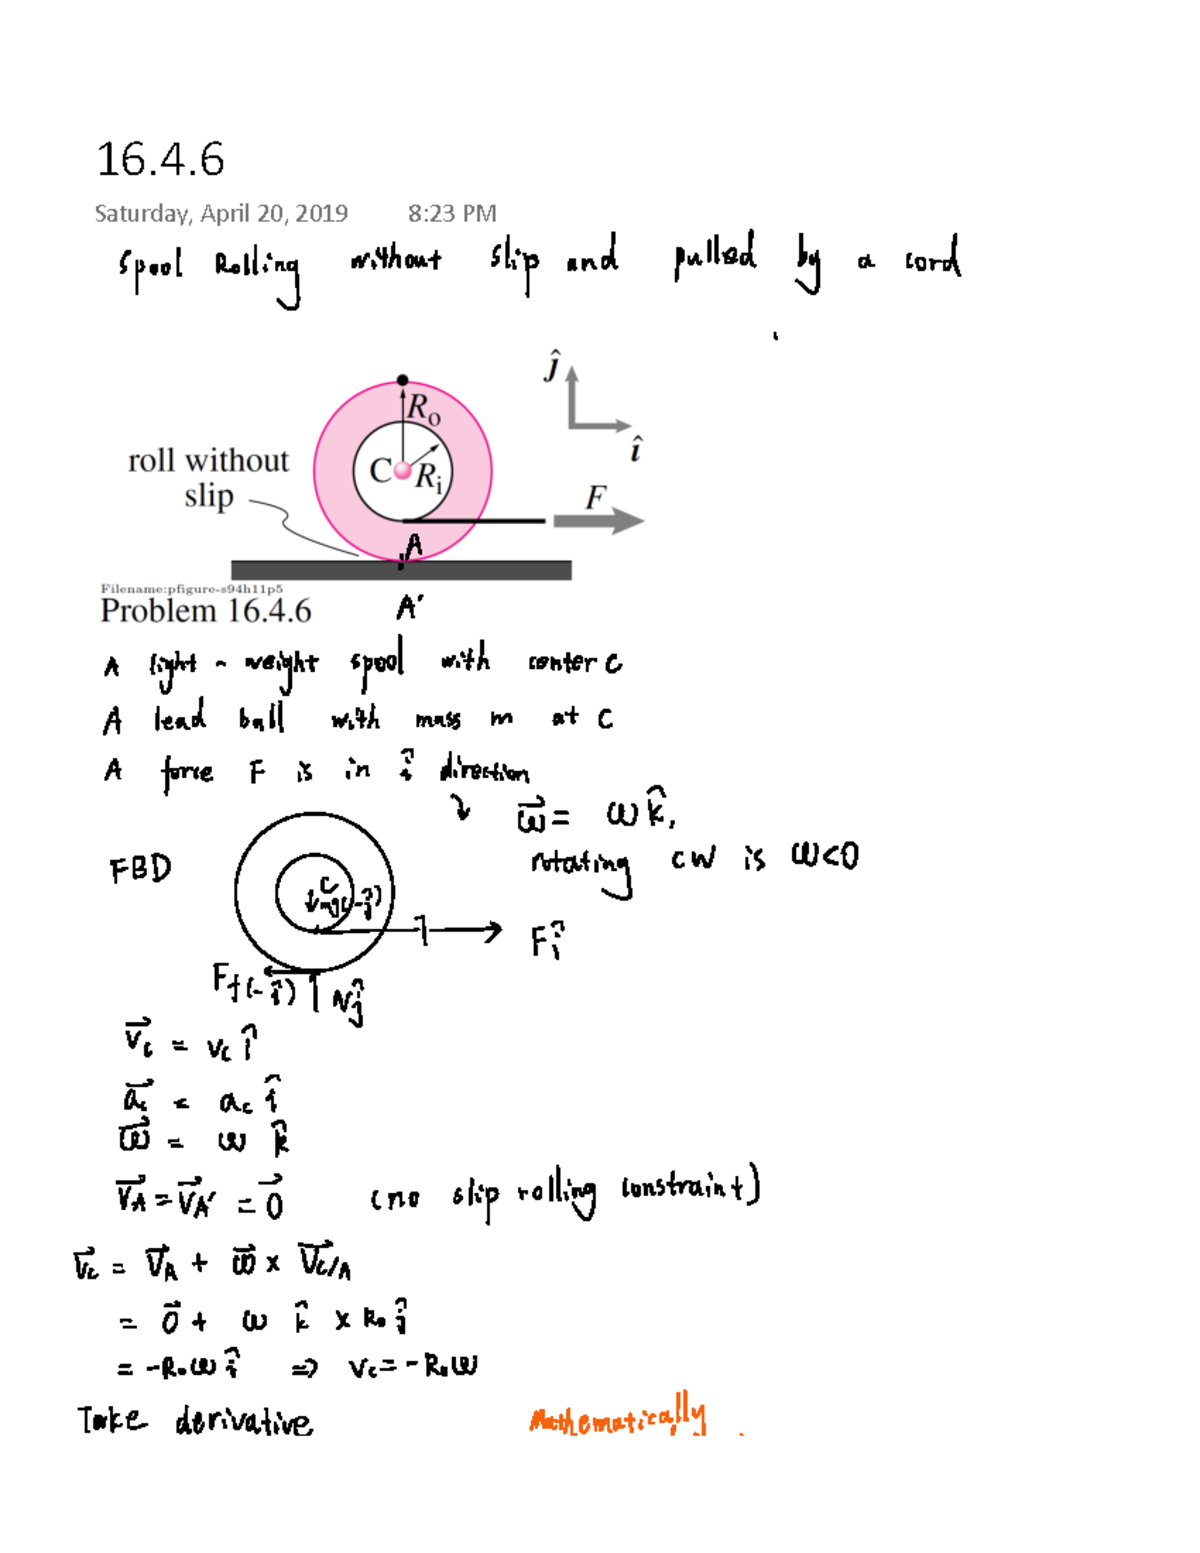 16.4.6
Saturday, April 20, 2019 8:23 PM
Spool Rolling without slip and pulled by a cord
ĵ
R₀
î
roll without
slip
C Rᵢ
F
A
Filename:pfigure-s94h11p5
Problem 16.4.6
A'
A light-weight spool with center C
A lead ball with mass m at C
A force F is in î direction
ω⃗ = ω k̂,
FBD
rotating CW is ω<0
C
mg(-ĵ)
F î
F_f(-î) N ĵ
v⃗_c = v_c î
a⃗_c = a_c î
ω⃗ = ω k̂
v⃗_A = v⃗_A' = 0⃗ (no slip rolling constraint)
v⃗_c = v⃗_A + ω⃗ × v⃗_C/A
= 0⃗ + ω k̂ × R₀ ĵ
= -R₀ω î ⇒ v_c = -R₀ω
Take derivative Mathematically